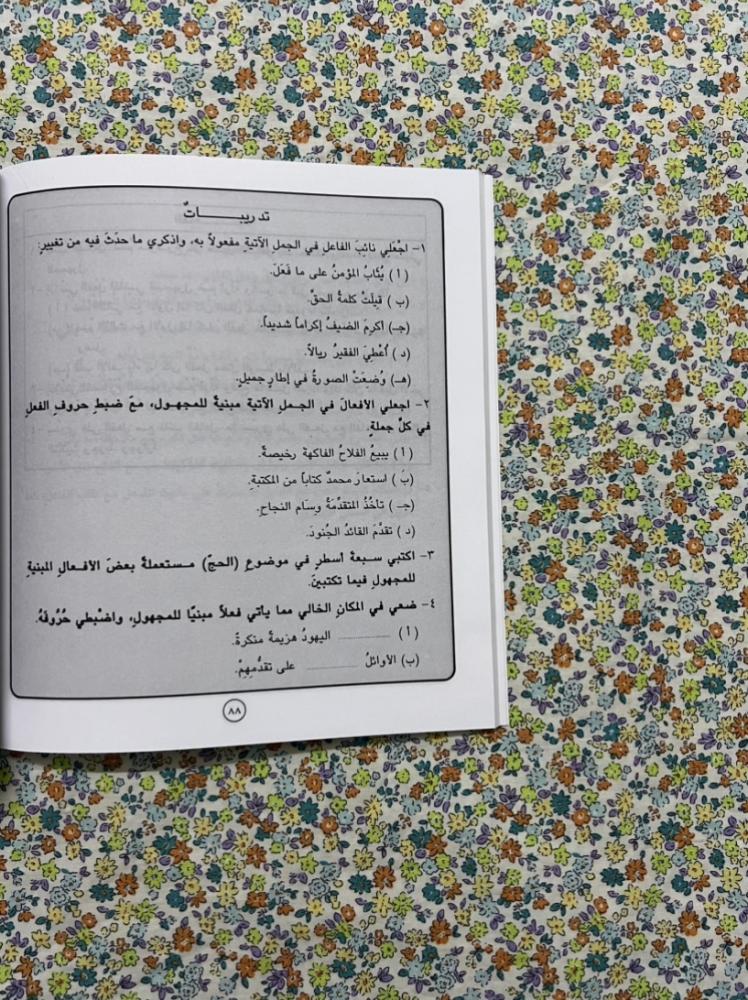 تدريبـــــاتٌ
١- اجْعَلي نائبَ الفاعلِ في الجملِ الآتيةِ مفعولاً به، واذكري ما حدَثَ فيه من تغييرٍ:
(أ) يُثابُ المؤمنُ على ما فَعَلَ.
(ب) قيلَتْ كلمةُ الحقِّ.
(جـ) أكرِمَ الضيفُ إكراماً شديداً.
(د) أُعْطِيَ الفقيرُ ريالاً.
(هـ) وُضعَتْ الصورةُ في إطارٍ جميلٍ.
٢- اجعلي الأفعالَ في الجملِ الآتيةِ مبنيةً للمجهولِ، معَ ضبطِ حروفِ الفعلِ
في كلِّ جملةٍ.
(أ) يبيعُ الفلاحُ الفاكهةَ رخيصةً.
(بَ) استعارَ محمدٌ كتاباً من المكتبةِ.
(جـ) تأخُذُ المتقدِّمَةُ وسَام النجاحِ.
(د) تقدَّمَ القائدُ الجُنودَ.
٣- اكتبي سـبعةَ أسطرٍ في موضوعِ (الحجِّ) مـستعملةً بعضَ الأفـعالِ المبنيةِ
للمجهولِ فيما تكتبينَ.
٤- ضعي في المكانِ الخالي مما يأتي فعلاً مبنيًا للمجهولِ، واضْبطي حُرُوفَهُ.
(أ) ............ اليهودُ هزيمةً منكرةً.
(ب) الأوائلُ ............ على تقدُّمِهِمْ.
٨٨